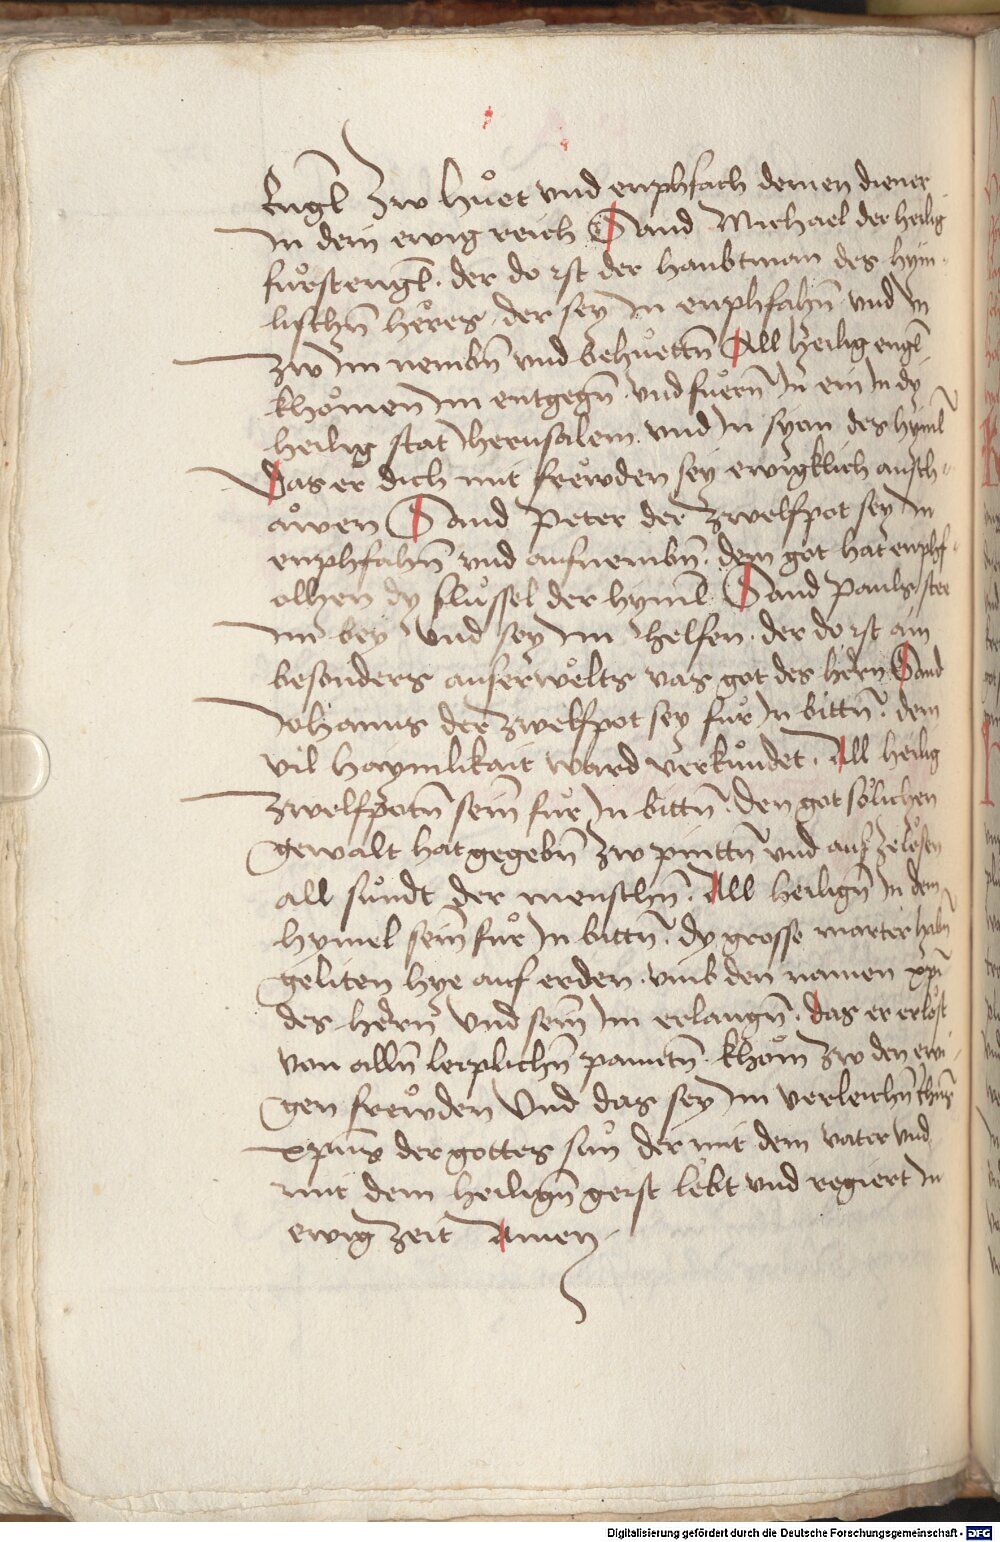 Engl zw huͦet vnd enphfach deinen diener
In dein ewig reich Sand Michael der heilig
fuͦrst engl. der do ist der haubtman des hym-
lischn̄ hoͤres, der sey In enphfahn̄ vnd In
zw im nembn̄ vnd behuͤettn̄ All heilig engl
khoͤmen im entgegn̄. vnd fuͤern̄ In ein In dy
heilig stat Iherusalem. vnd In syon des hyml̄
Das er dich mit freẘden sey ewigklich ansch-
aẘen Sand Peter der zwelfpot sey In
enphfahn̄ vnd aufnembn̄. dem got hat enphf-
olhen dy sluͤssel der hyml̄ Sand Pauls stee
Im bey vnd sey im helfen. der do ist ain
besonders auserwoͤlts vas got des hern Sand
Johanns der zwelfpot sey fuͤr In bittn̄. dem
vil haymlikait ward verkuͤndet. All heilig
zwelfpotn̄ sein̄ fuͤr In bittn̄. den got soͤlichen
gewalt hat gegebn̄ zw pinttn̄ vnd auf zeloͤsen
all suͤndt der menschn̄. All heilign̄ In dem
hymel sein̄ fuͤr In bittn̄. dy grosse marter habn̄
geliten hye auf erden. vmb den namen xp̄i
des hern̄ vnd sein̄ im erlangn̄. das er erloͤst
von alln̄ leiplichn̄ panntn̄. khoͤm zw den ewi-
gen freẘden Vnd das sey im verleichn̄ Ihūs
xp̄ūs der gottes sun̄ der mit dem vater vnd
mit dem heilign̄ geist lebt vnd regiert In
ewig zeit Amen.
Digitalisierung gefördert durch die Deutsche Forschungsgemeinschaft - DFG